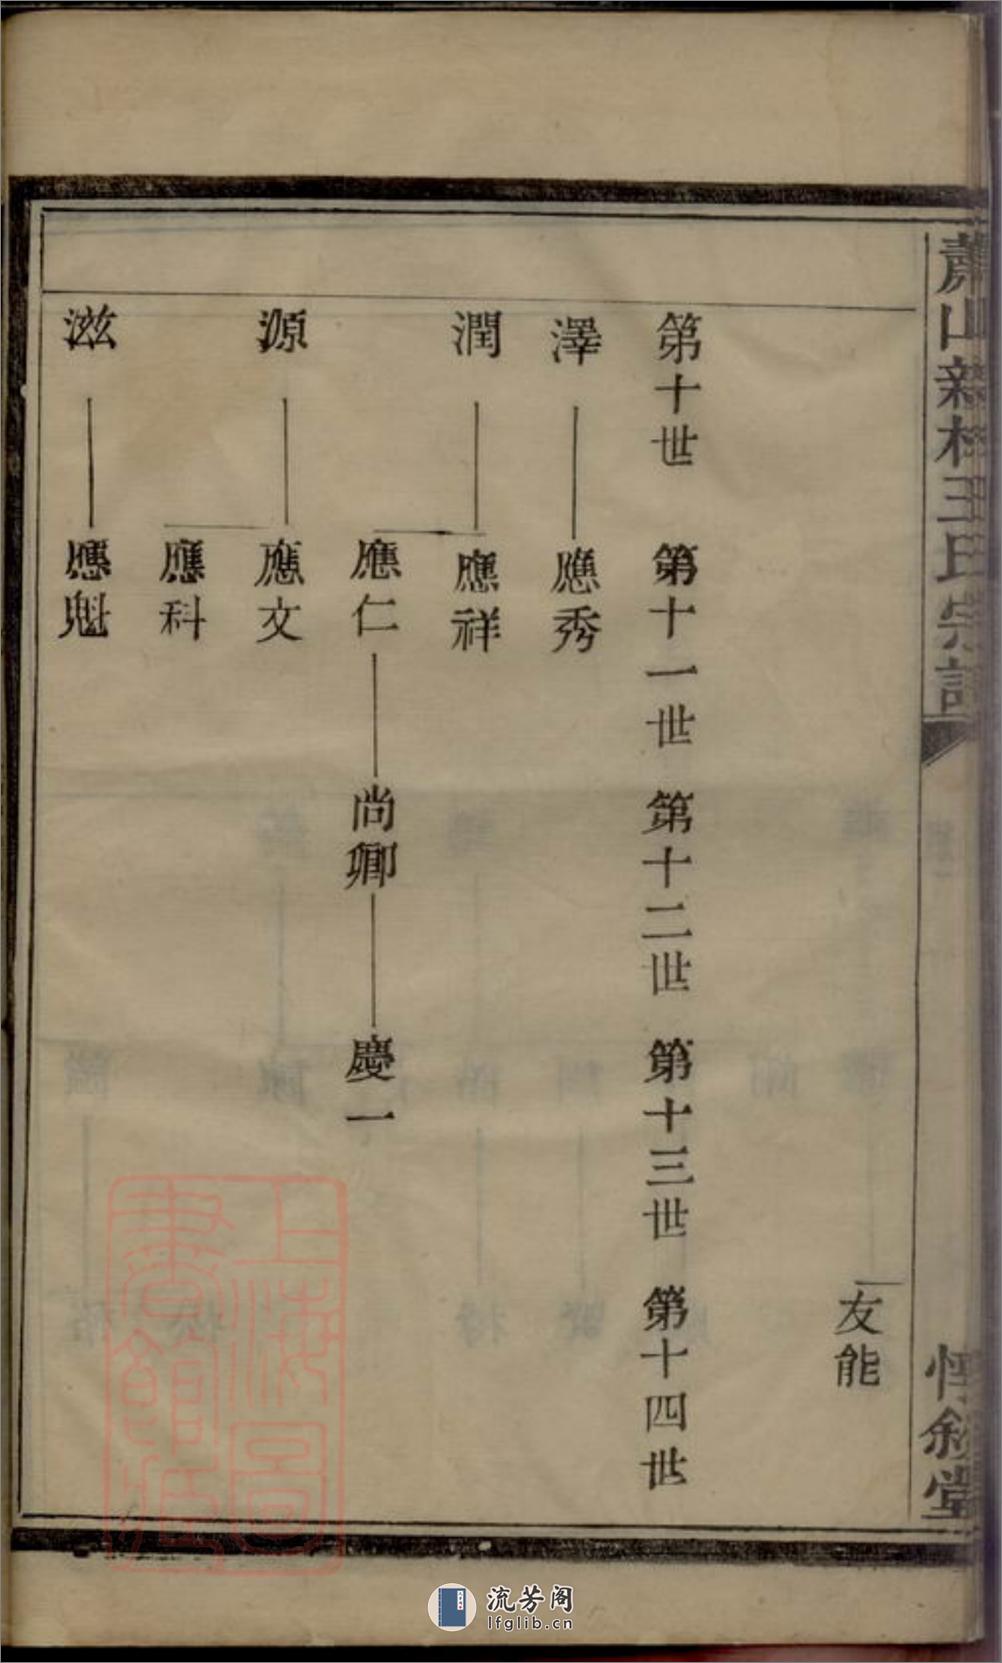 蕭山新林王氏宗譜
惇敘堂
友能
第十世 第十一世 第十二世 第十三世 第十四世
澤 應秀
潤 應祥
應仁 尚卿 慶一
源 應文
應科
滋 應魁
上海圖書館藏
流芳阁
lfglib.cn